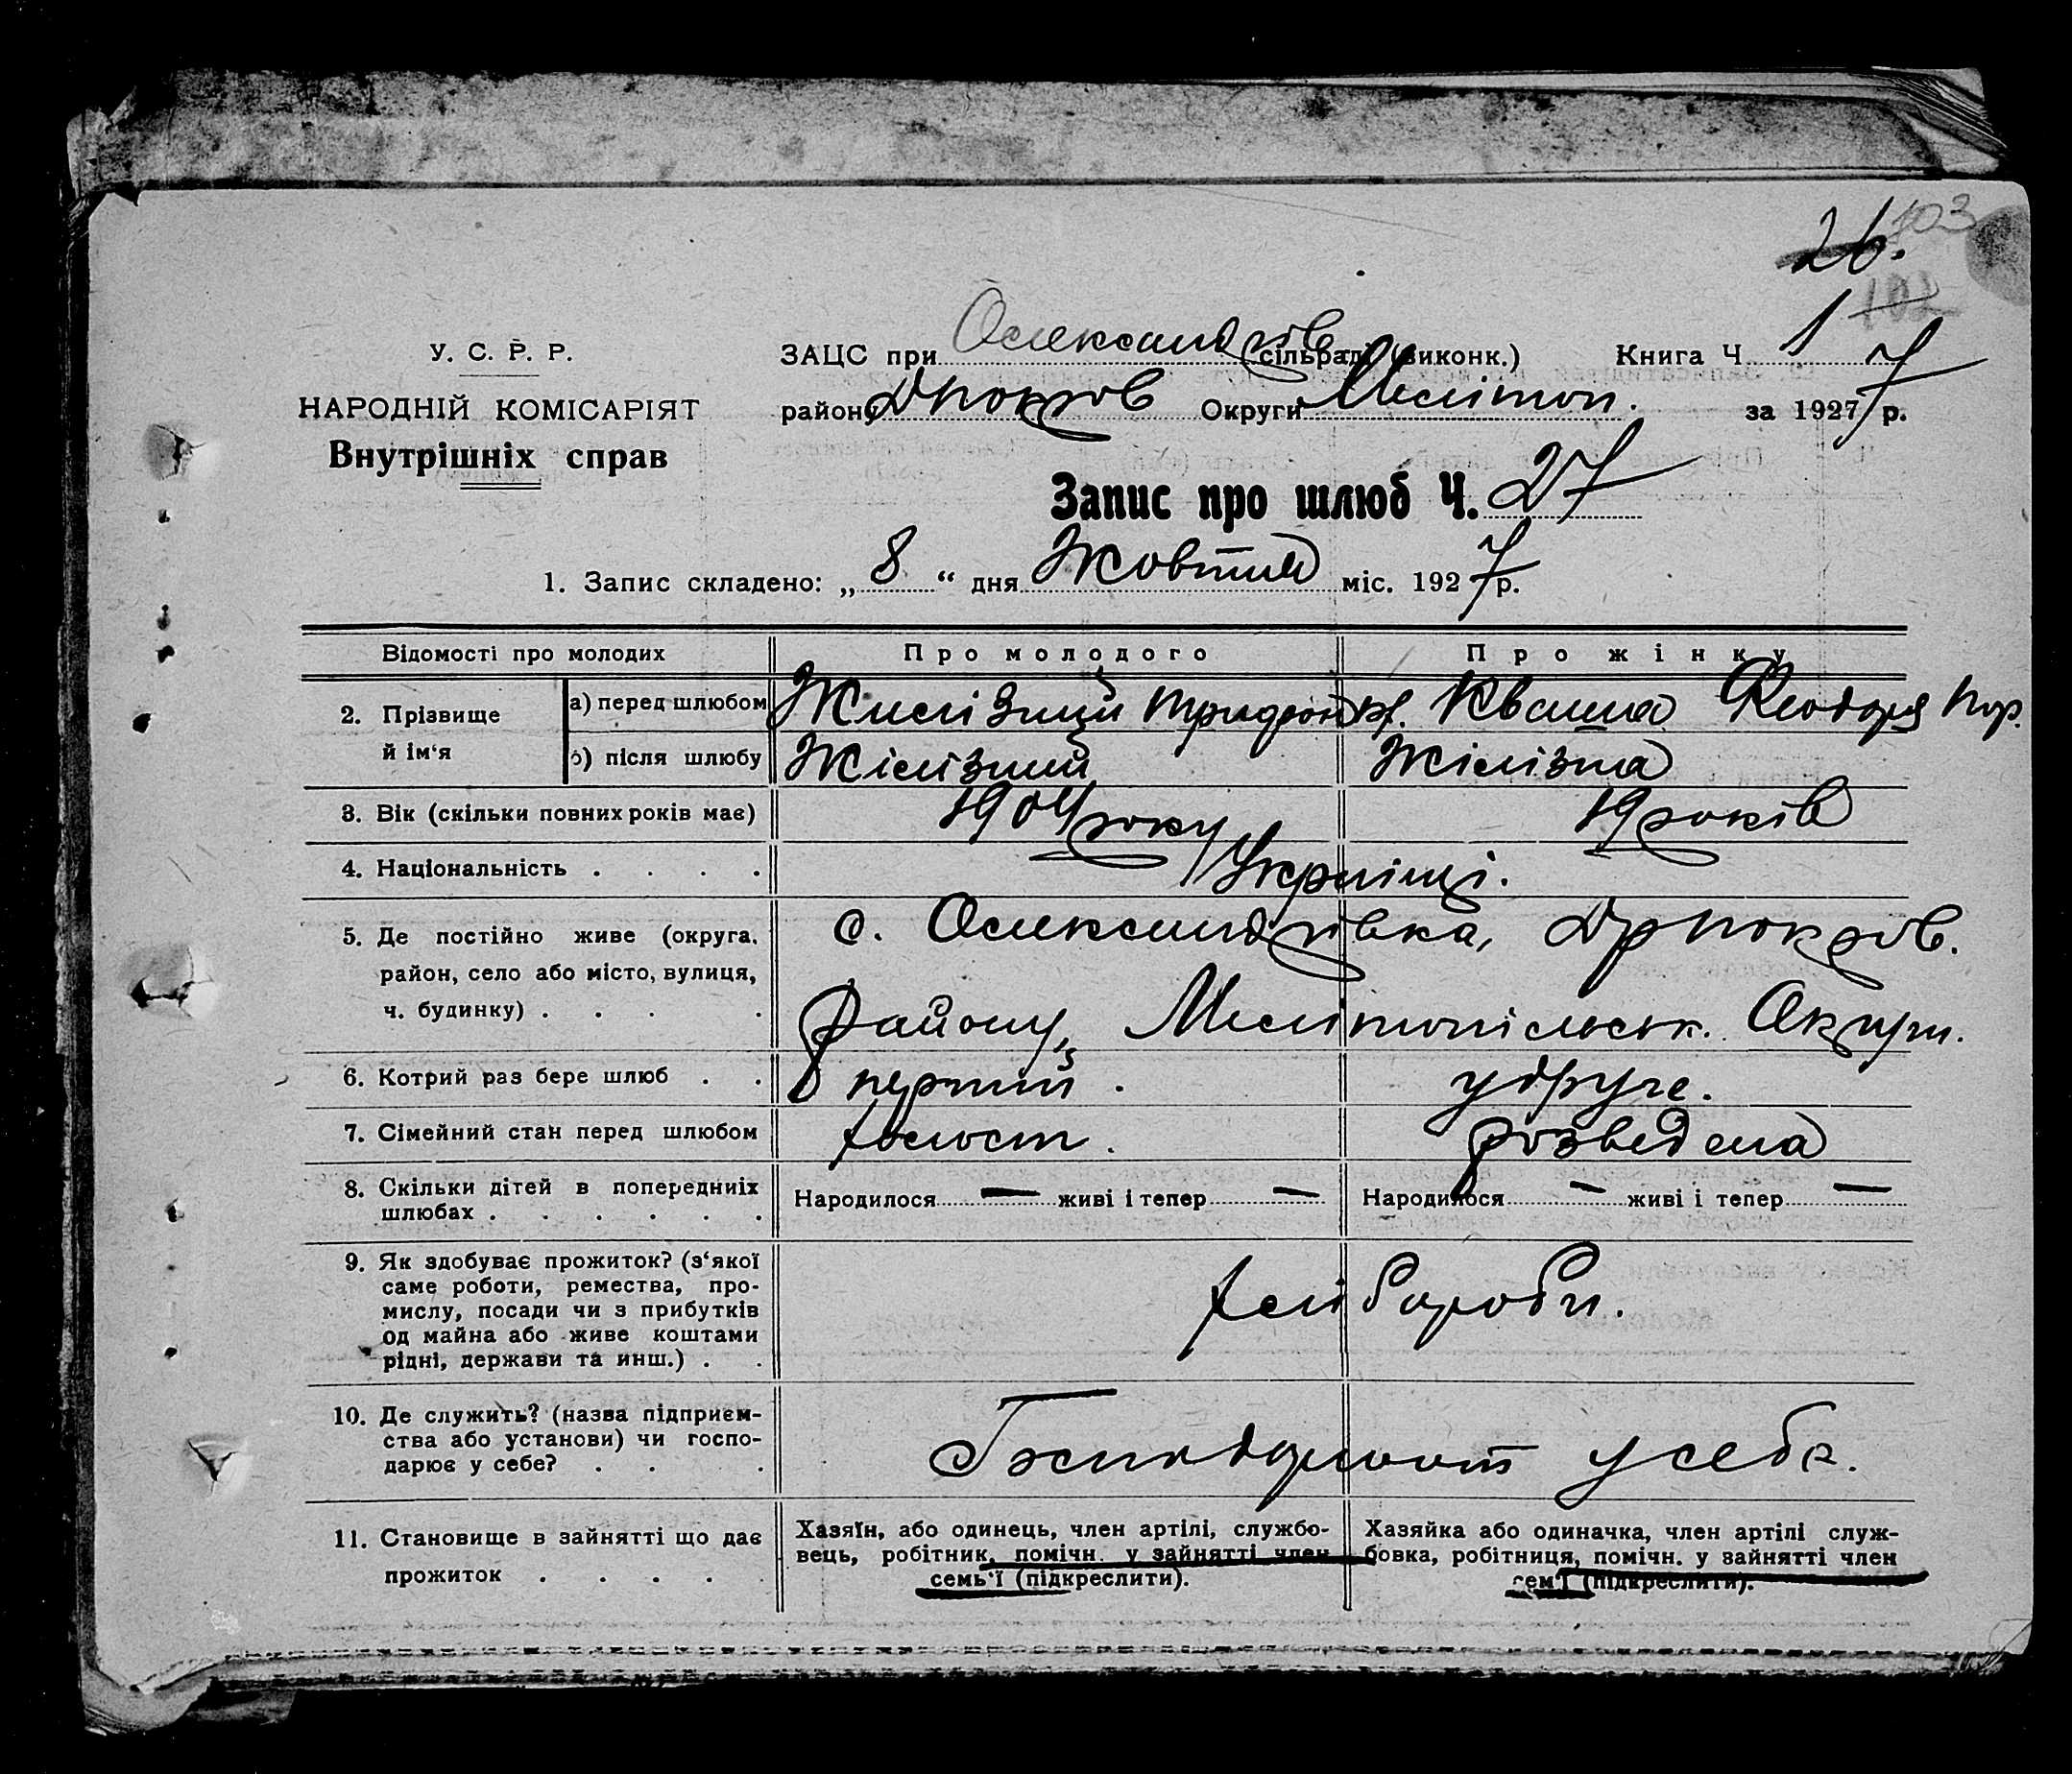 103
26.
102
У. С. Р. Р.
НАРОДНІЙ КОМІСАРІЯТ
Внутрішніх справ
ЗАЦС при Олександрів сільраді (виконк.) Книга Ч 1
району Дпокров Округи Мелітоп. за 1927 7 р.
Запис про шлюб Ч. 27
1. Запис складено: „ 8 “ дня Жовтня міс. 1927 р.
Відомості про молодих
Про молодого
Про жінку
2. Прізвище й ім‘я
а) перед шлюбом
Жилізний
Кваша Феодора
б) після шлюбу
Жілізний
Жілізна
3. Вік (скільки повних років має)
1904 року
19 років
4. Національність . . . .
Українці.
5. Де постійно живе (округа,
район, село або місто, вулиця,
ч. будинку) . . . .
с. Олександрівка, Дрпокров.
району, Мелітопільськ. Округи.
6. Котрий раз бере шлюб . .
перший .
удруге.
7. Сімейний стан перед шлюбом
холост .
розведена
8. Скільки дітей в попередниіх
шлюбах . . . . . .
Народилося — живі і тепер —
Народилося — живі і тепер —
9. Як здобуває прожиток? (з‘якої
саме роботи, ремества, про-
мислу, посади чи з прибутків
од майна або живе коштами
рідні, держави та инш.) . .
хлібороби.
10. Де служить? (назва підприєм-
ства або установи) чи госпо-
дарює у себе? . . . .
Господарюють у себе.
11. Становище в зайнятті що дає
прожиток . . . . .
Хазяїн, або одинець, член артілі, службо-
вець, робітник, помічн. у зайнятті член
семь‘ї (підкреслити).
Хазяйка або одиначка, член артілі служ-
бовка, робітниця, помічн. у зайнятті член
сем‘ї (підкреслити).